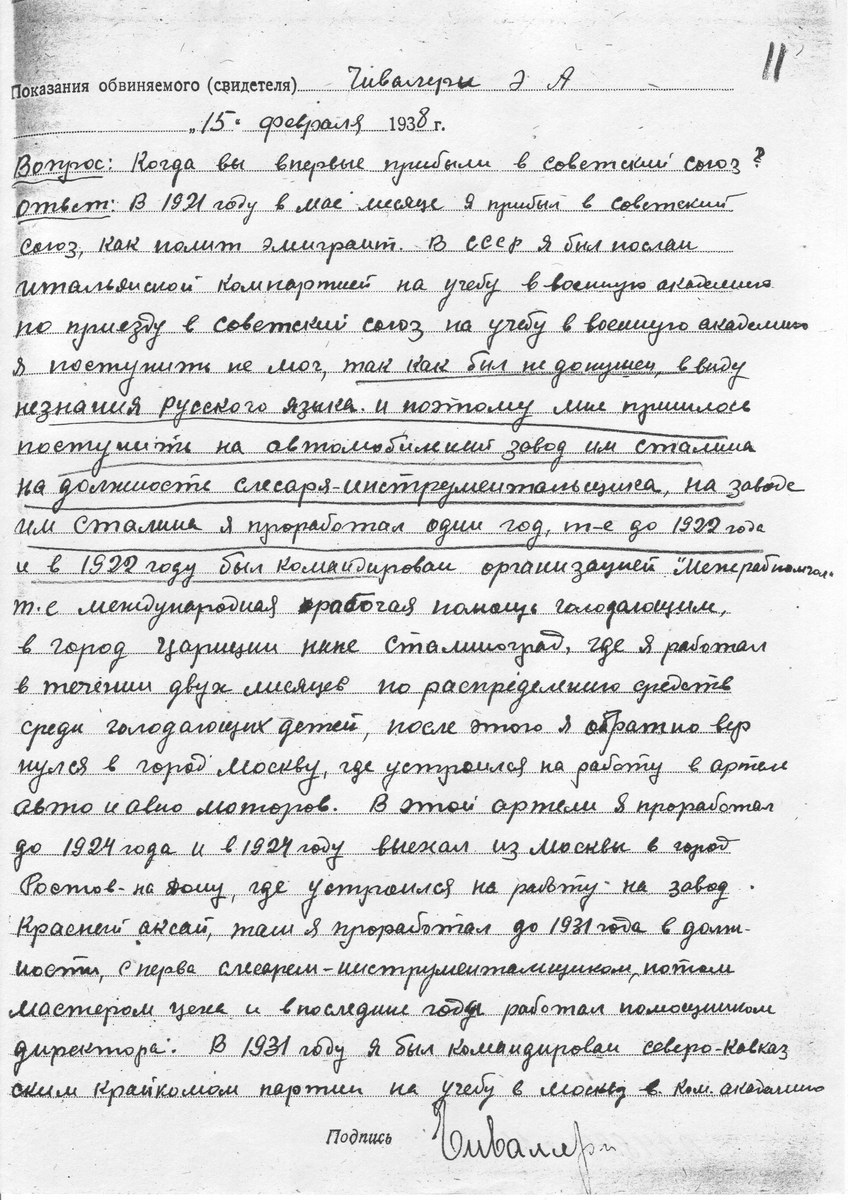 11
Показания обвиняемого (свидетеля) Чивалери Э А
„15“ февраля 1938 г.
Вопрос: Когда вы впервые прибыли в советский союз?
Ответ: В 1921 году в мае месяце я прибыл в советский
союз, как полит эмигрант. В СССР я был послан
итальянской компартией на учебу в военную академию
по приезду в советский союз на учебу в военную академию
я поступить не мог, так как был не допущен, в виду
незнания русского языка. и поэтому мне пришлось
поступить на автомобильный завод им Сталина
на должность слесаря-инструментальщика, на заводе
им Сталина я проработал один год, т-е до 1922 года
и в 1922 году был командирован организацией "Межрабпомгол"
т.е международная рабочая помощь голодающим,
в город Царицин ныне Сталинград, где я работал
в течении двух месяцев по распределению средств
среди голодающих детей, после этого я обратно вер
нулся в город Москву, где устроился на работу в артель
авто и авио моторов. В этой артели я проработал
до 1924 года и в 1924 году выехал из Москвы в город
Ростов-на Дону, где устроился на работу на завод
Красный аксай, там я проработал до 1931 года в долж-
ности, сперва слесарем-инструментальщиком, потом
мастером цеха и в последние годы работал помощником
директора. В 1931 году я был командирован северо-Кавказ
ским Крайкомом партии на учебу в Москву в Ком. академию
Подпись Чивалери